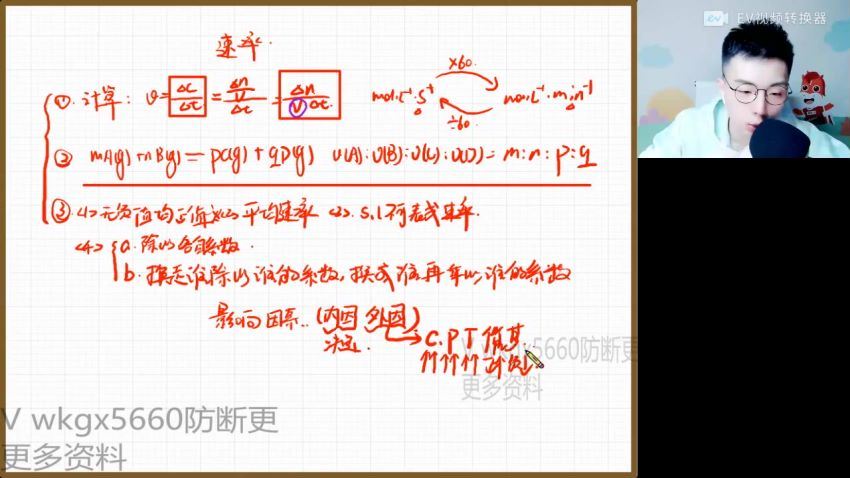 速率.
① 计算: v = Δc/Δt = Δn/V/Δt = Δn/VΔt mol·L⁻¹·s⁻¹ ×60 ÷60 mol·L⁻¹·min⁻¹
② mA(g)+nB(g)=pC(g)+qD(g) υ(A):υ(B):υ(C):υ(D)=m:n:p:q
③ <1>无负值均正值 <2>平均速率 <3>. S.l 不表或速率.
<4> a.除以各自系数.
b.换走谁除以谁的系数,换成谁再乘以谁的系数
影响因素. (内因 外因)
决定. C.P T 催 其
↑↑ ↑↑ ↑↑ 正↑ 负↓
EV视频转换器
V wkgx5660防断更
更多资料
V wkgx5660防断更
更多资料